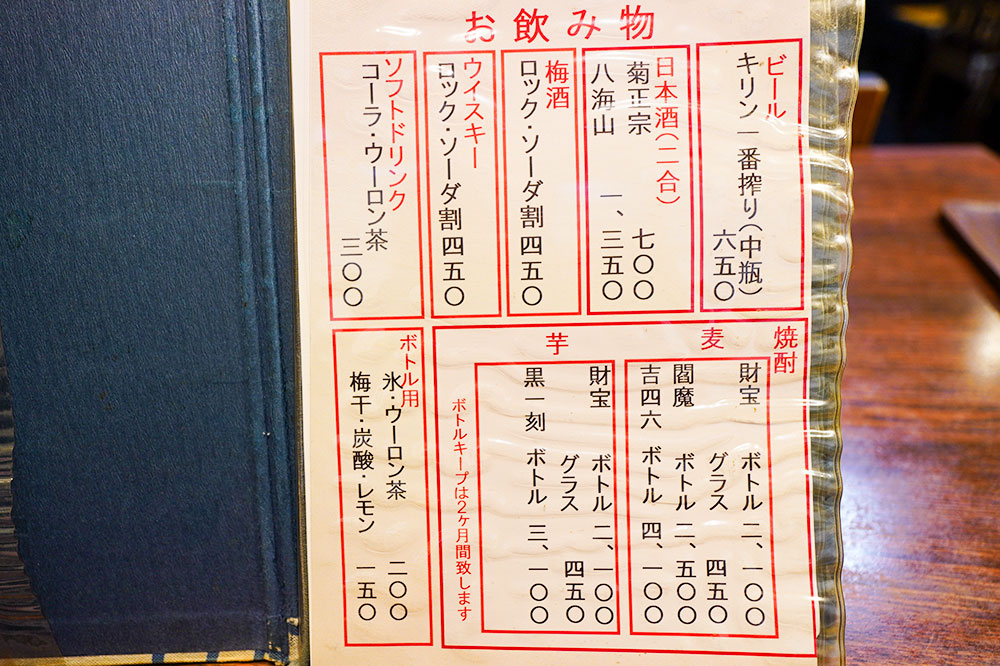 お飲み物
ビール
キリン一番搾り(中瓶)
六五〇
日本酒(二合)
菊正宗 七〇〇
八海山 一、三五〇
梅酒
ロック・ソーダ割 四五〇
ウイスキー
ロック・ソーダ割 四五〇
ソフトドリンク
コーラ・ウーロン茶
三〇〇
焼酎
麦
財宝 ボトル 二、一〇〇
グラス 四五〇
閻魔 ボトル 二、五〇〇
吉四六 ボトル 四、一〇〇
芋
財宝 ボトル 二、一〇〇
グラス 四五〇
黒一刻 ボトル 三、一〇〇
ボトルキープは2ヶ月間致します
ボトル用
氷・ウーロン茶 二〇〇
梅干・炭酸・レモン 一五〇